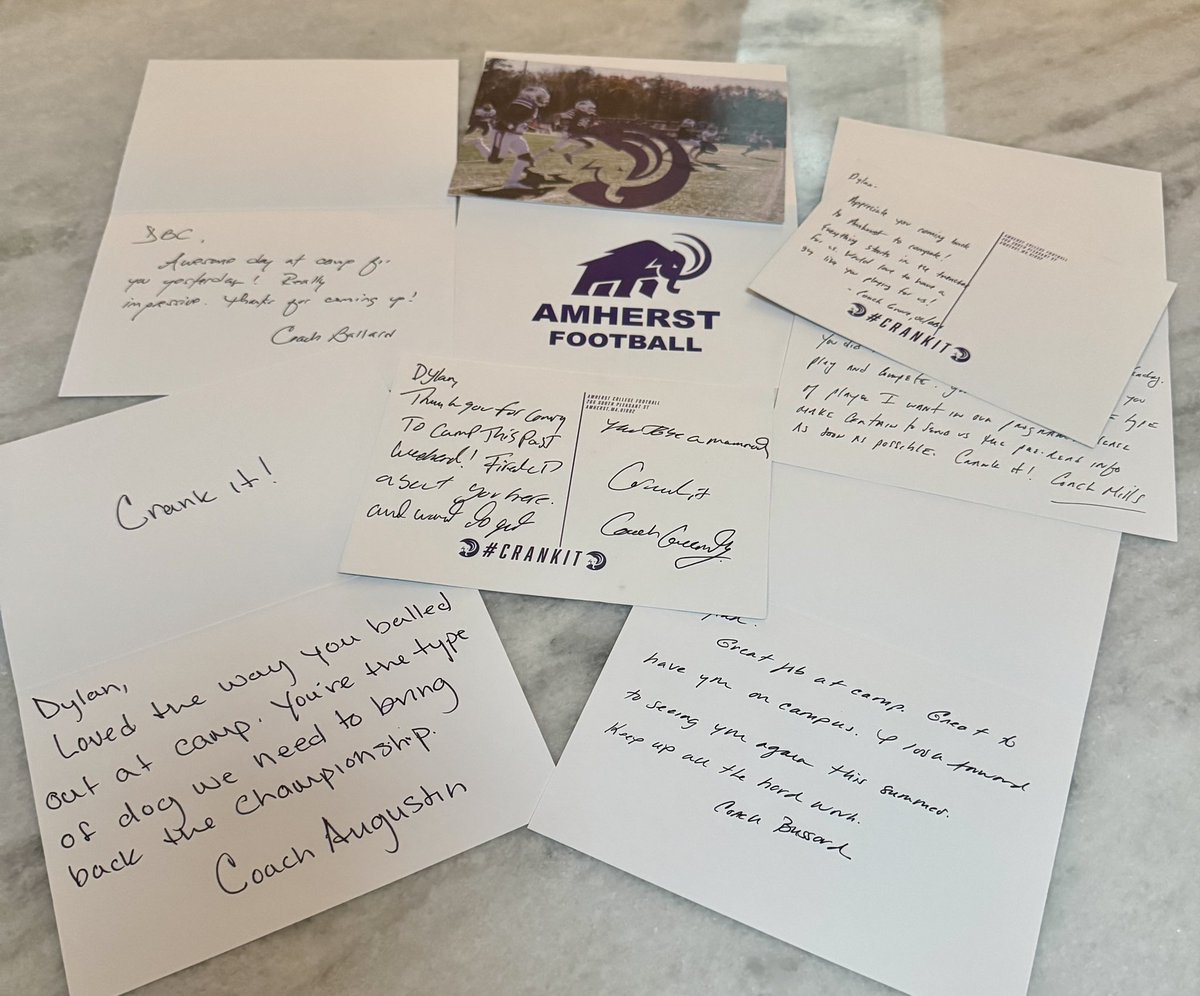 DBC,
Awesome day at camp for
you yesterday! Really
impressive. Thanks for coming up!
Coach Ballard
AMHERST
FOOTBALL
Dylan-
Appreciate you coming back
to Amherst to compete!
Everything starts in the trenches
for us. Would love to have a
guy like you playing for us!
- Coach
AMHERST COLLEGE FOOTBALL
#CRANKIT
You did
play and compete. you
of player I want in our program. Please
make certain to send us the pre-read info
as soon as possible. Crank it! Coach Mills
Dylan,
Thank you for coming
To camp This Past
weekend! Fired up
about you here.
and want to get
AMHERST COLLEGE FOOTBALL
AMHERST, MA. 01002
you to be a mammoth
Crank it
Coach
#CRANKIT
Crank it!
Dylan,
Loved the way you balled
out at camp. You're the type
of dog we need to bring
back the championship.
Coach Augustin
Great job at camp. Great to
have you on campus. I look forward
to seeing you again this summer.
Keep up all the hard work.
Coach Bussard